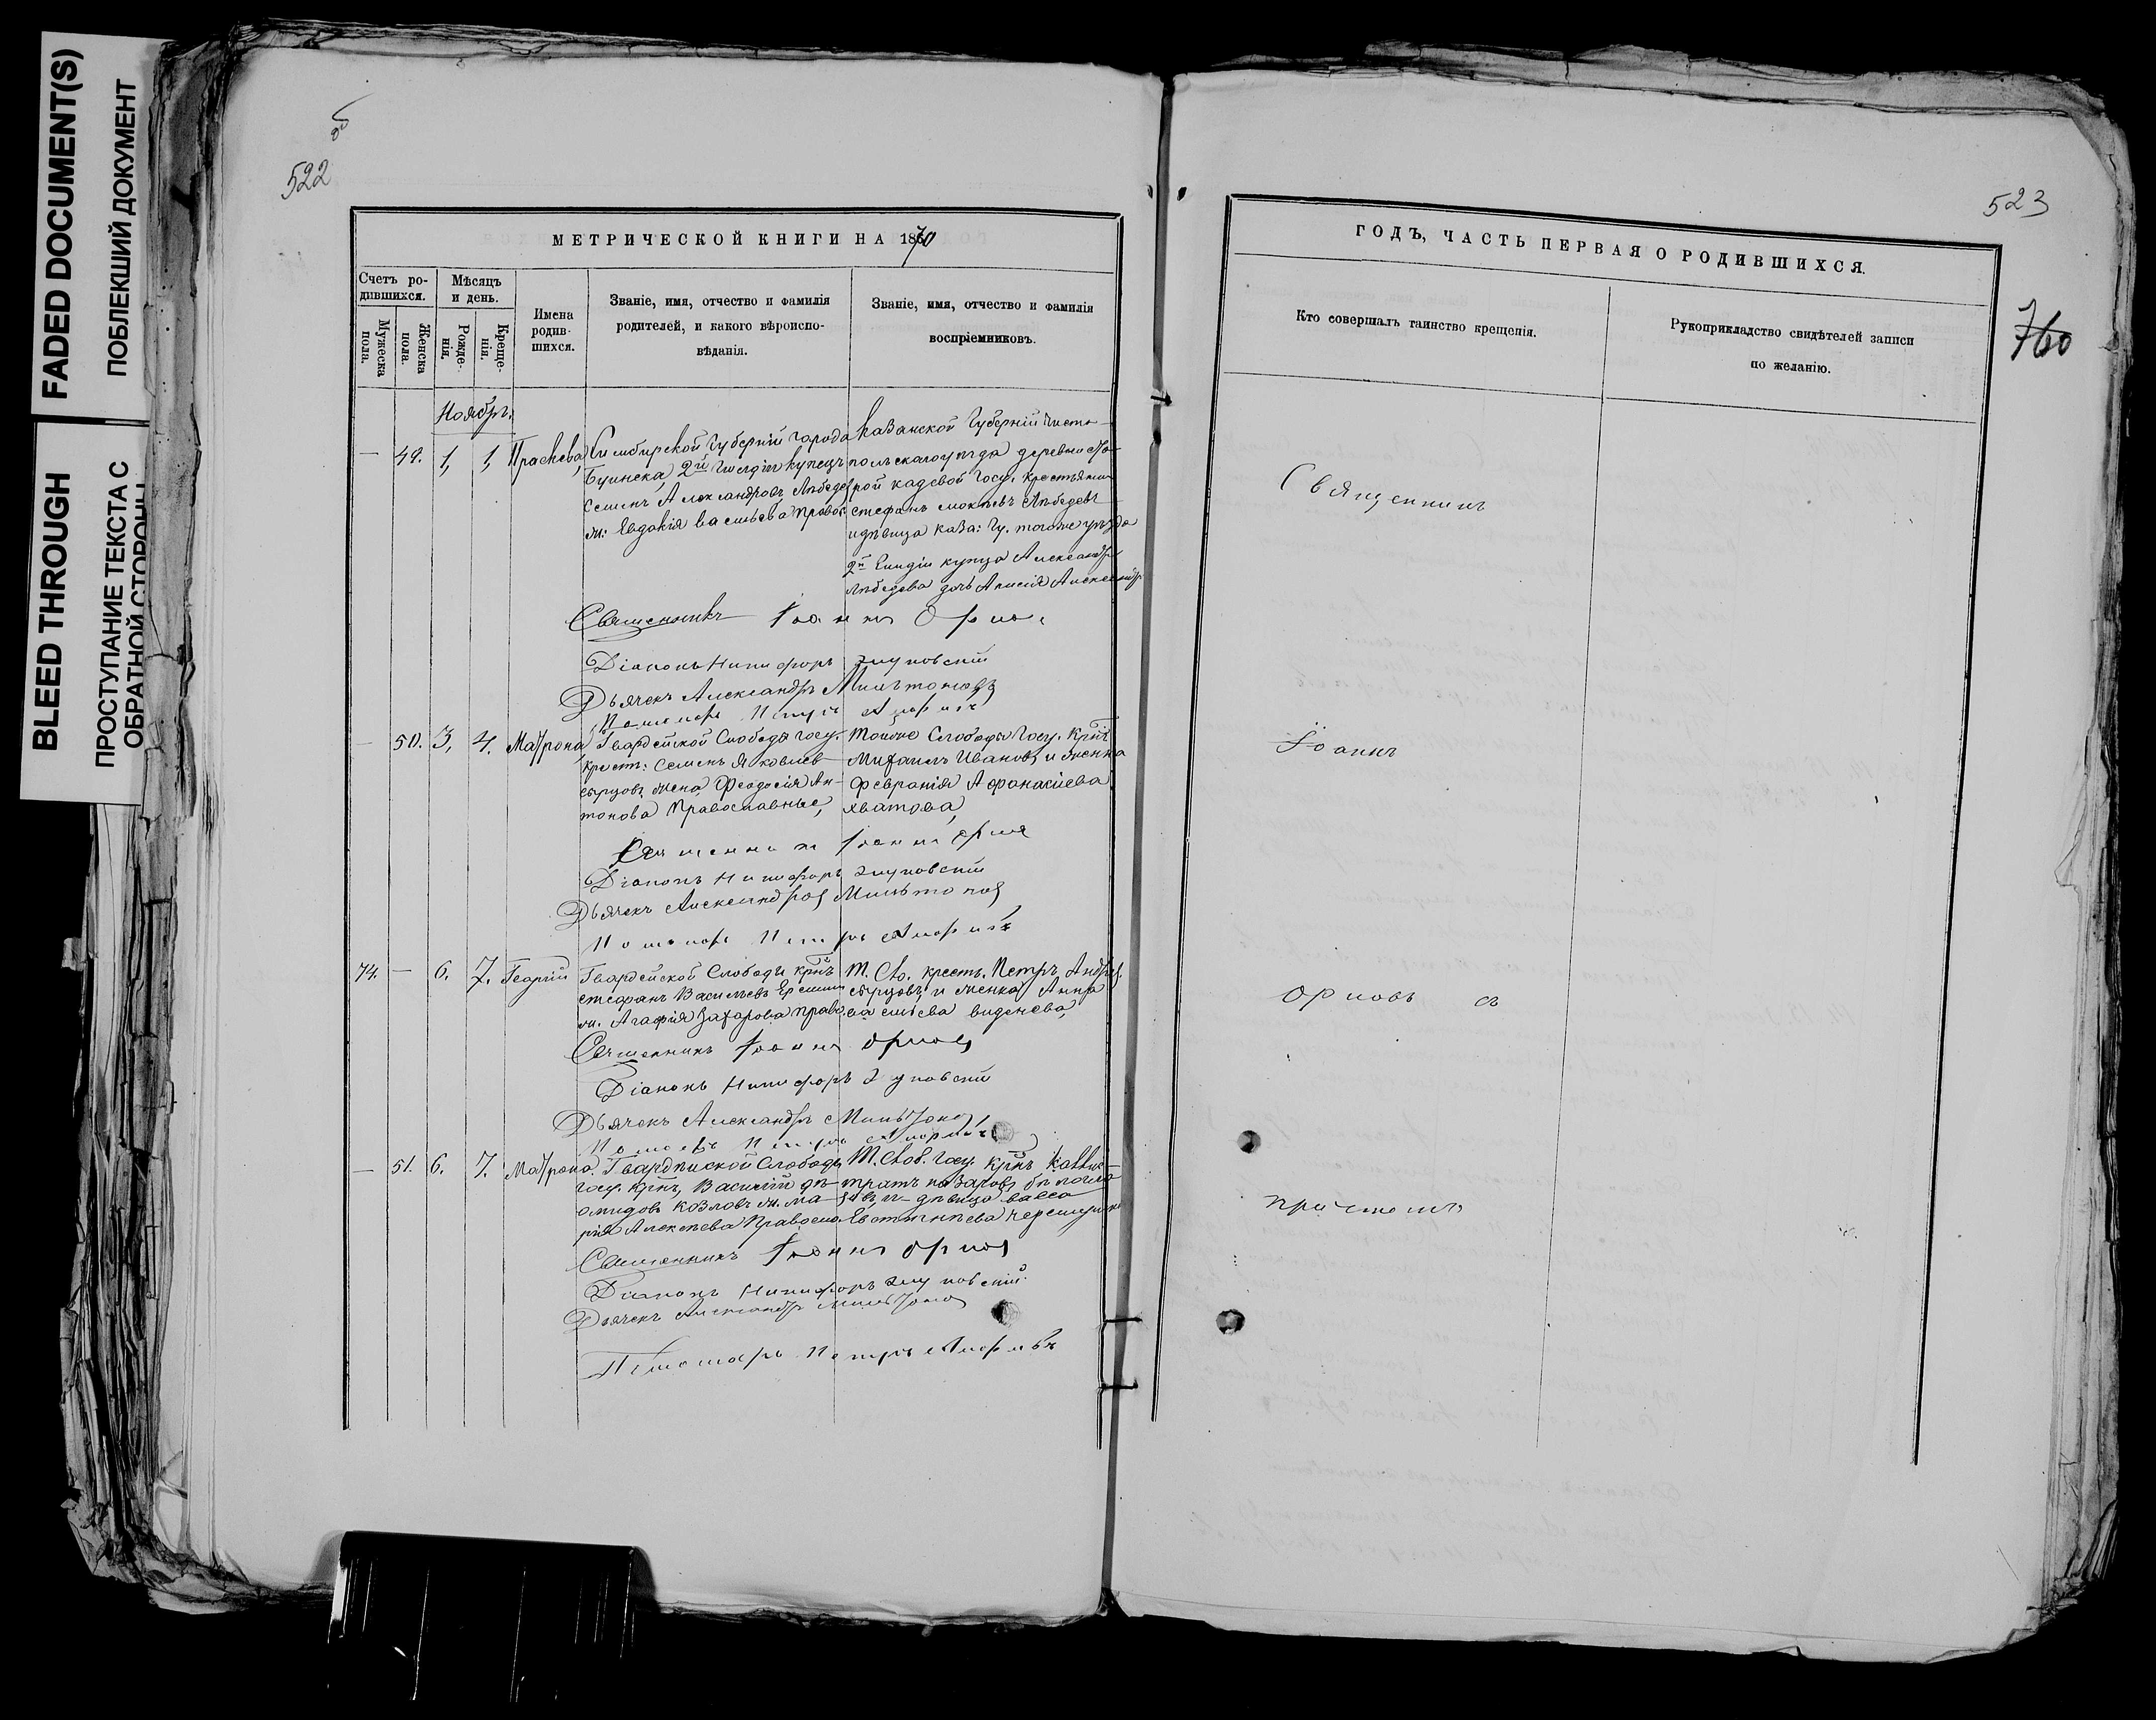 FADED DOCUMENT(S)
ПОБЛЕКШИЙ ДОКУМЕНТ
BLEED THROUGH
ПРОСТУПАНИЕ ТЕКСТА С
ОБРАТНОЙ СТОРОНЫ
об
522
МЕТРИЧЕСКОЙ КНИГИ НА 1870
Счетъ ро-
дившихся.
Мужеска
пола.
Женска
пола.
Мѣсяцъ
и день.
Рожде-
нія.
Креще-
нія.
Имена
родив-
шихся.
Званіе, имя, отчество и фамилія
родителей, и какого вѣроиспо-
вѣданія.
Званіе, имя, отчество и фамилія
воспріемниковъ.
Ноябрь
— 49. 1, 1, Праскева,
Симбирской Губерніи города
Буинска 2й Гильдіи купецъ
Семенъ Александровъ Лебедев
ж: Евдокія Васильева Правос:
Казанской Губерніи Чисто-
польскаго уѣзда деревни Ста-
рой кадеевой Госу. крестьянин
Стефанъ Лебедевъ
и дѣвица Каза: Гу. тогоже уѣзда
2й Гильдіи купца Александра
Лебедева дочь Александр.
Священникъ Іоаннъ Орлов
Діаконъ Никифоръ
Дьячекъ Александръ Мильтоновъ
Пономарь Петръ
— 50. 3, 4. Матрона,
Гвардейской Слободы госу.
крест: Семенъ Яковлев
сырцовъ, жена Феодосія Ан-
тонова Православные,
Тойже Слободы Госу. Крнъ
Михаилъ Ивановъ, и женка
Февранія Афонасіева
хватова,
Священникъ Іоаннъ Орлов
Діаконъ Никифоръ
Дьячекъ Александръ Мильтонов
Пономарь Петръ
74. — 6. 7. Георгій
Гвардейской Слободы крнъ
стефанъ Васильевъ Еремин
ж. Агафія Захарова право.
Т. Сло. крест. Петръ Андр.
сырцовъ, и женка Анна
васильева виденева,
Священникъ Іоаннъ Орлов
Діаконъ Никифоръ
Дьячекъ Александръ Мильтонов
Пономарь Петръ
— 51. 6. 7. Матрона.
Гвардейской Слободы
госу. крнъ, Василій
козловъ ж. Ма-
рія Алексѣева Правосла.
Т. Слоб. Госу. крнъ
дѣвица васса
Евстигнѣева
Священникъ Іоаннъ Орлов
Діаконъ Никифоръ
Дьячекъ Александръ Мильтонов
Пономарь Петръ
523
760
ГОДЪ, ЧАСТЬ ПЕРВАЯ О РОДИВШИХСЯ.
Кто совершалъ таинство крещенія.
Рукоприкладство свидѣтелей записи
по желанію.
Священникъ
Іоаннъ
Орловъ съ
причтомъ